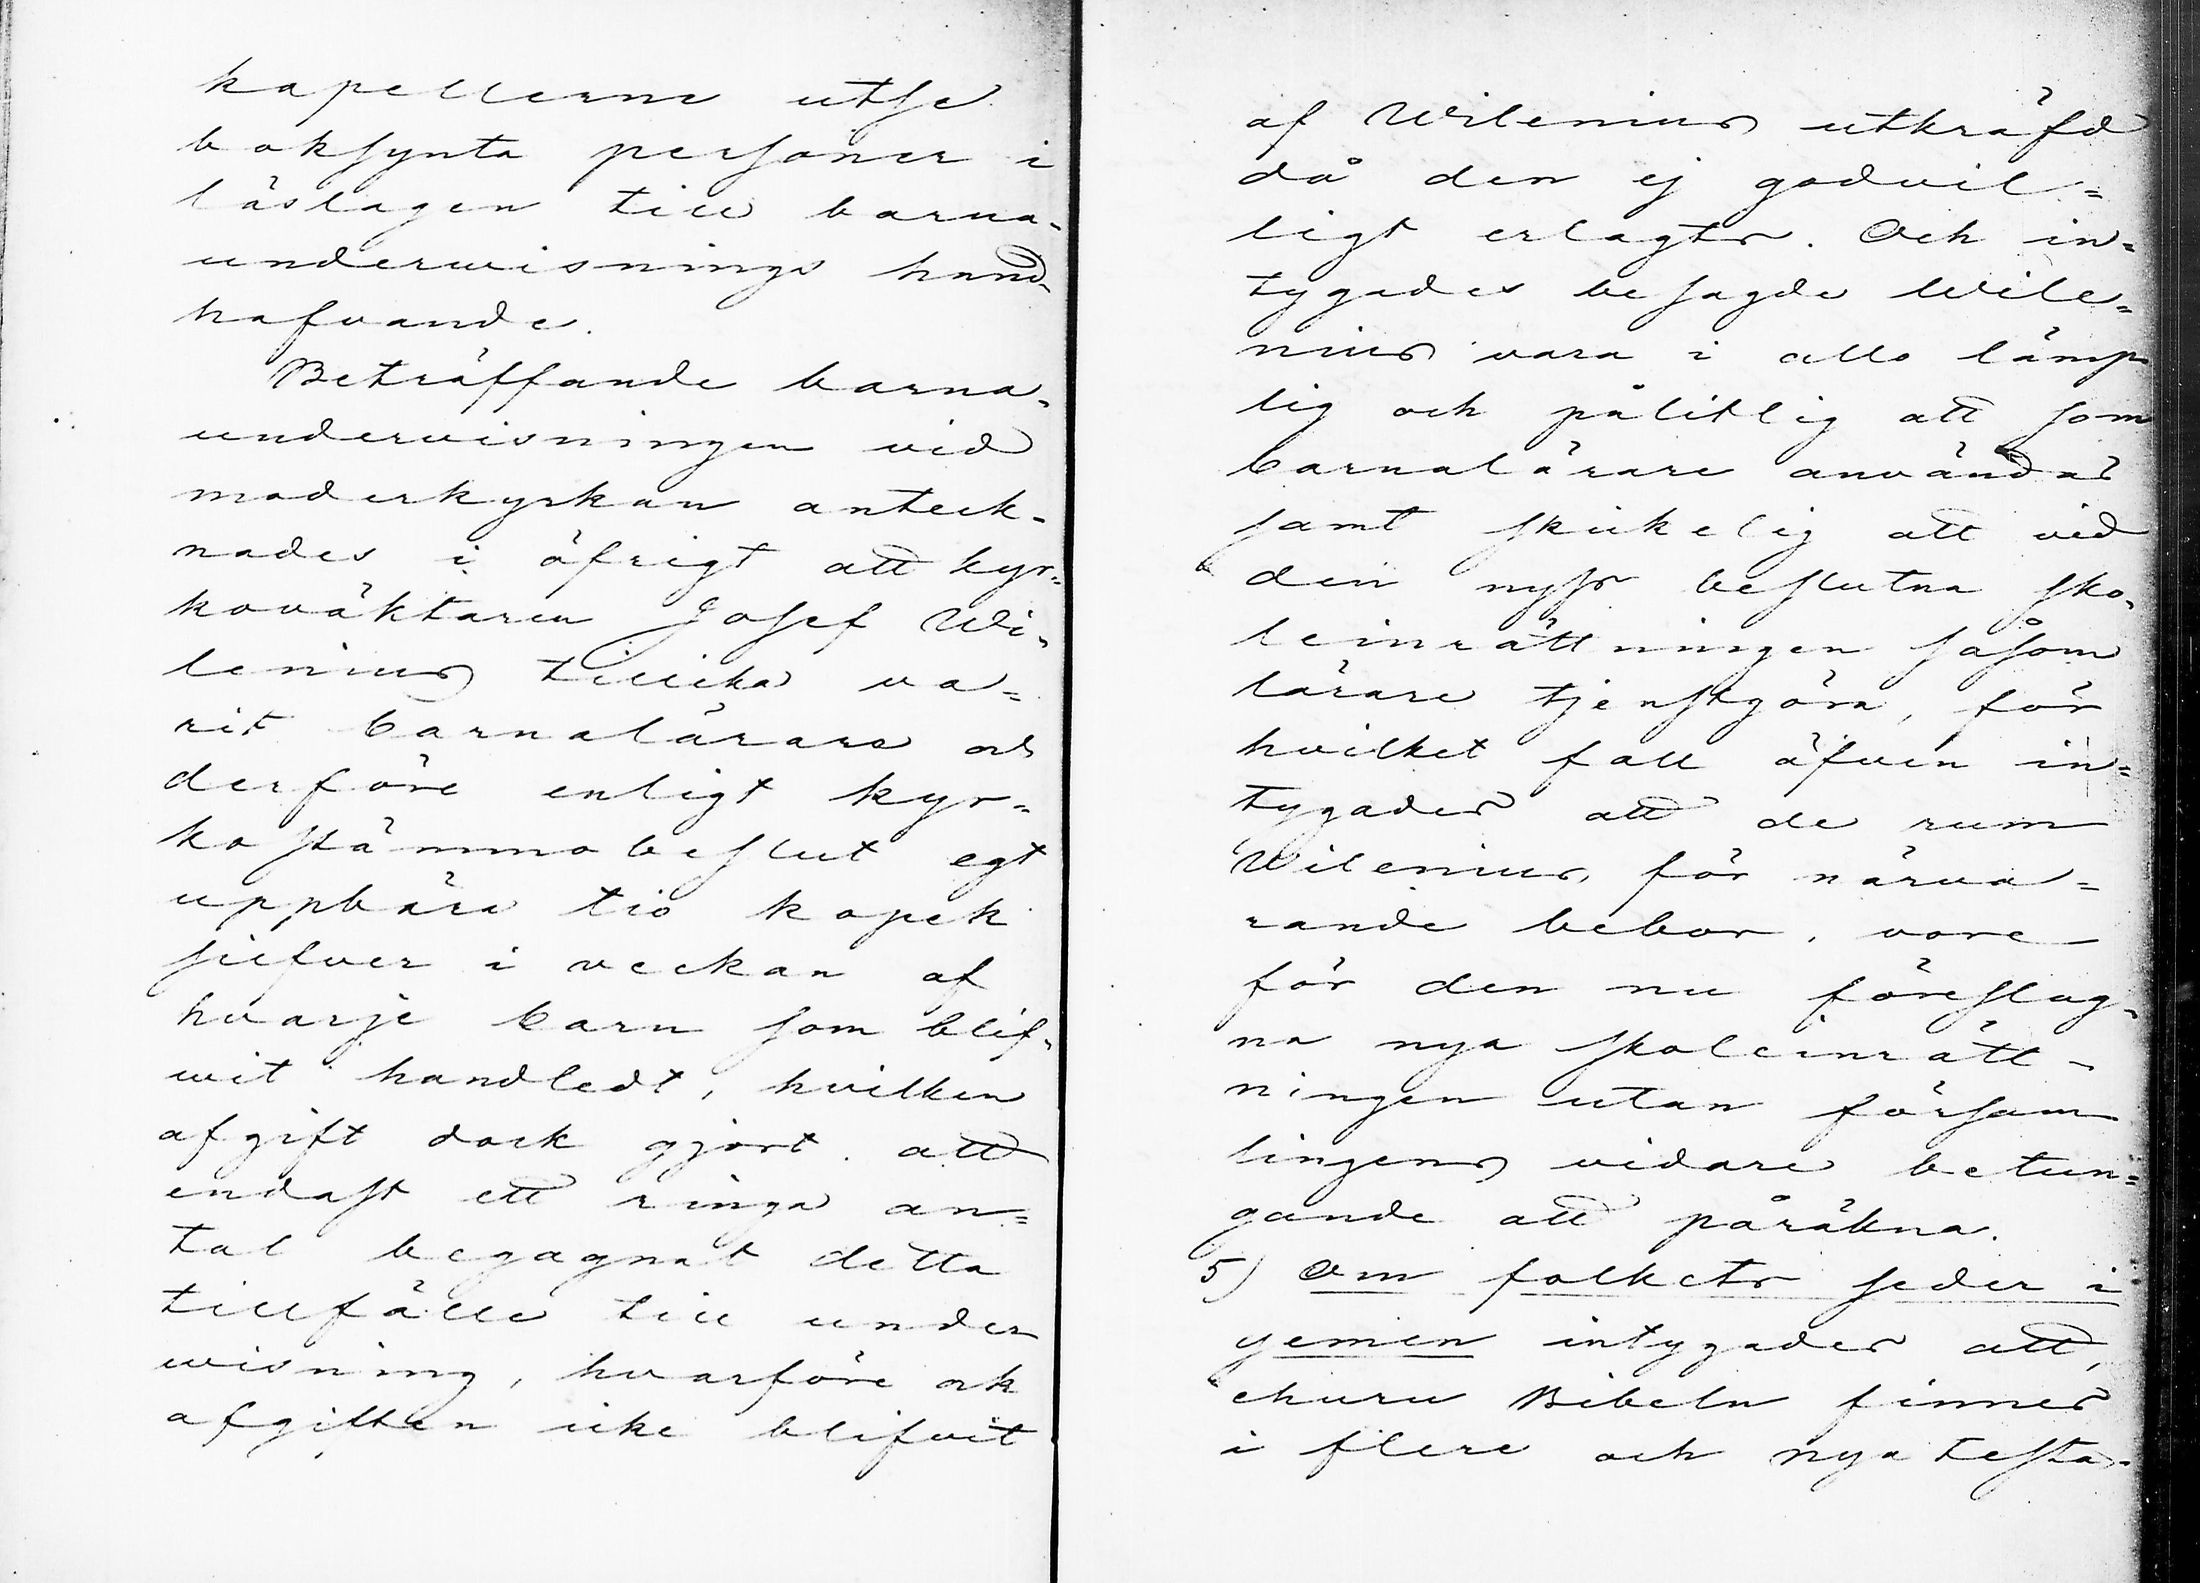 kapellerne utse
boksynta personer i
läslagen till barna-
underwisnings hand-
hafvande.
Beträffande barna-
undervisningen vid
moderkyrkan anteck-
nades i öfrigt att kyr-
koväktaren Josef Wi-
lenius tillika va=
rit barnalärare och
derföre enligt kyr-
kostämmobeslut egt
uppbära tio kopek
silfver i veckan af
hvarje barn som blif-
wit handledt, hvilken
afgift dock gjort att
endast ett ringa an=
tal begagnat detta
tillfälle till under
wisning, hvarföre ock
afgiften icke blifvit
af Wilenius utkräfd
då den ej godvil=
ligt erlagts. Och in=
tygades besagde Wile=
nius vara i allo lämp
lig och pålitlig att som
barnalärare användas
samt skickelig att vid
den nyss beslutna sko-
leinrättningen såsom
lärare tjenstgöra, för
hvilket fall äfven in=
tygades att de rum
Wilenius för närva=
rande bebor, vore
för den nu föreslag-
na nya skoleinrätt-
ningen utan försam
lingens vidare betun=
gande att påräkna.
5) Om folkets seder i
gemen intygades att,
ehuru Bibeln finnes
i flere och nya testa-